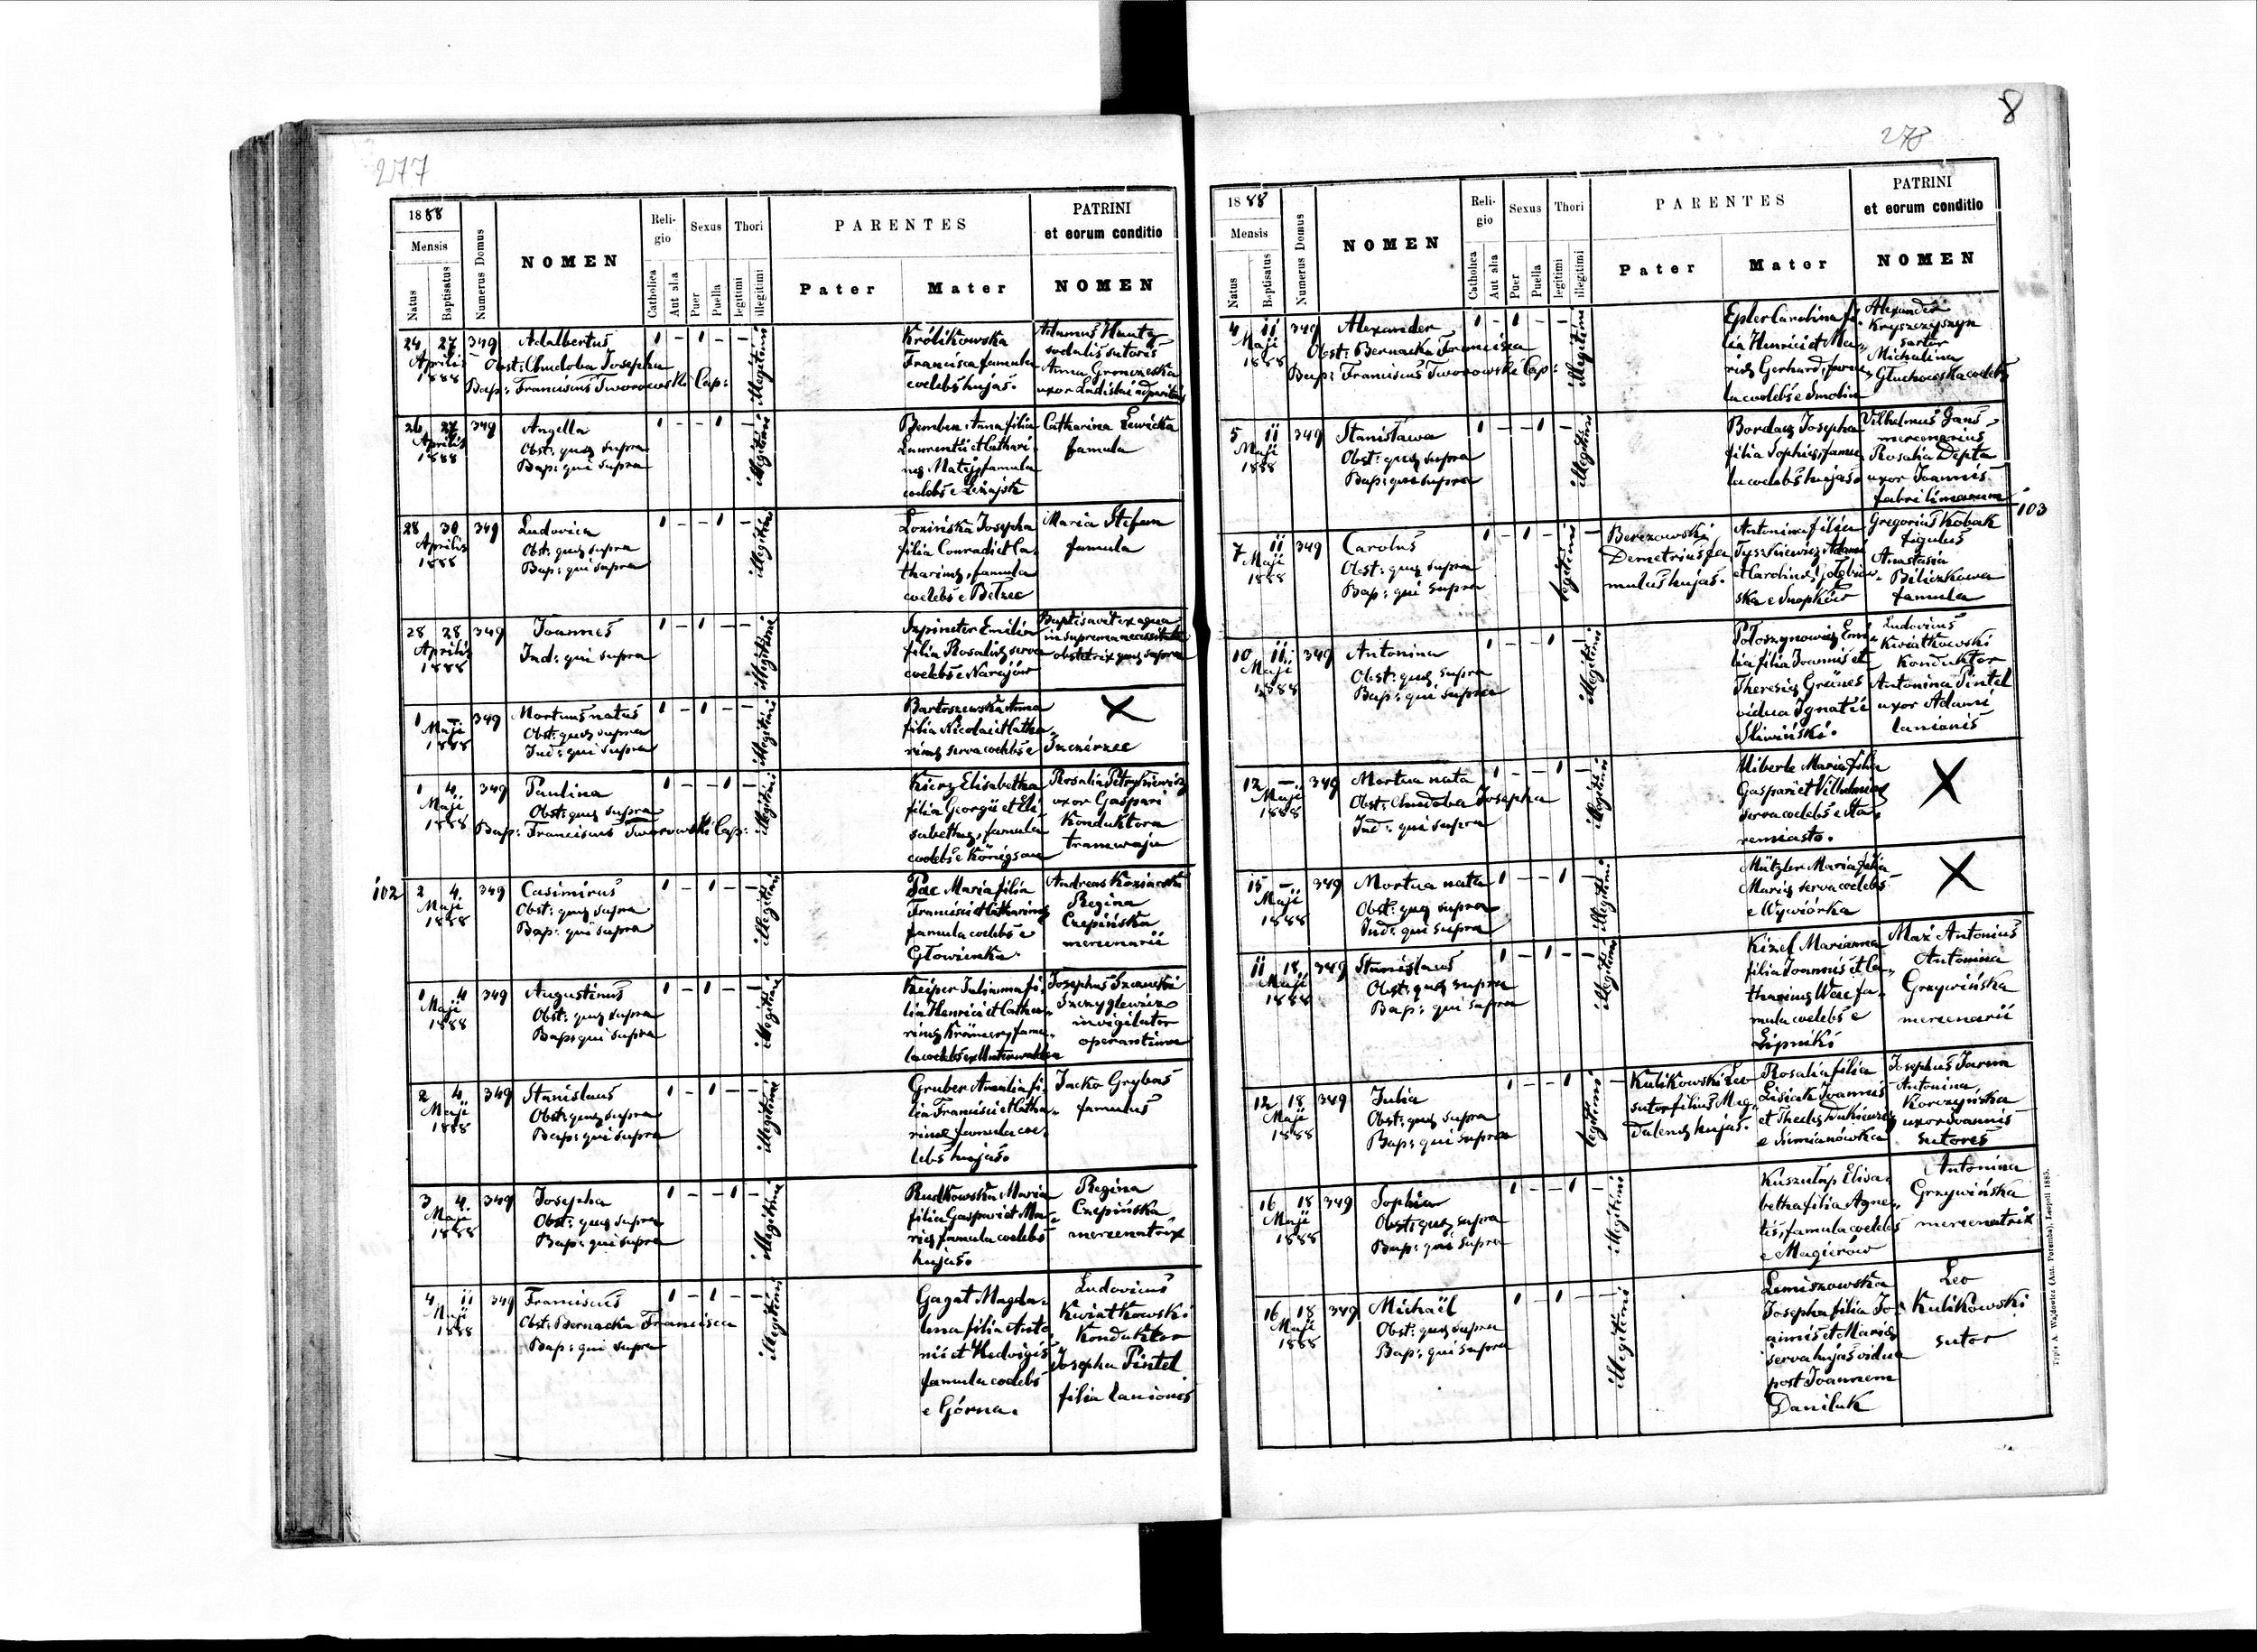 277
1888
Mensis
Natus
Baptisatus
Numerus Domus
NOMEN
Reli-
gio
Catholica
Aut alia
Sexus
Puer
Puella
Thori
legitimi
illegitimi
PARENTES
Pater
Mater
PATRINI
et eorum conditio
NOMEN
24 27 349 Adalbertus 1 - 1 - - illegitimi
Aprilis 1888
Obst: Chudoba Josepha
Bap: Franciscus Tworowski Cap:
Królikowska
Francisca famula
coelebs hujas.
Adamus
sodalis sutoris
Anna
uxor
26 27 349 Angella 1 - - 1 - illegitimi
Aprilis 1888
Obst: quae supra
Bap: qui supra
Bemben Anna filia
Laurentii et Cathari-
nae Matej, famula
coelebs e Leżajsk
Catharina Lewicka
famula
28 30 349 Ludovica 1 - - 1 - illegitimi
Aprilis 1888
Obst: quae supra
Bap: qui supra
Łozińska Josepha
filia Conradi et Ca-
tharinae, famula
coelebs e Bełzec
Maria Stefan
famula
28 28 349 Joannes 1 - 1 - - illegitimi
Aprilis 1888
Ind: qui supra
Szpineter Emilia
filia Rosaliae serva
coelebs e Narajów
Baptisavit ex aqua
in suprema necessitate
obstetrix quae supra
1 - 349 Mortuus natus 1 - 1 - - illegitimi
Maji 1888
Obst: quae supra
Ind: qui supra
Bartoszewska Anna
filia Nicolai et Catha-
rinae serva coelebs e Szczerzec
X
1 4 349 Paulina 1 - - 1 - illegitimi
Maji 1888
Obst: quae supra
Bap: Franciscus Tworowski Cap:
Kierz Elisabetha
filia Georgii et Eli-
sabethae, famula
coelebs e Königsau
Rosalia Petrykiewicz
uxor Gaspari
Konduktora
tramwaju
102
2 4 349 Casimirus 1 - 1 - - illegitimi
Maji 1888
Obst: quae supra
Bap: qui supra
Pac Maria filia
Francisci et Catharinae
famula coelebs e
Głowienka
Andreas
Regina
Czepińska
mercenarii
1 4 349 Augustinus 1 - 1 - - illegitimi
Maji 1888
Obst: quae supra
Bap: qui supra
Kreiper Julianna fi-
lia Henrici et Catha-
rinae Krämer, famu-
la coelebs ex Unterwalden
Josephus
Szczyglewicz
invigilator
operantium
2 4 349 Stanislaus 1 - 1 - - illegitimi
Maji 1888
Obst: quae supra
Bap: qui supra
Gruber Amalia fi-
lia Francisci et Catha-
rinae famula coe-
lebs hujas.
Jacko Grybas
famulus
3 4 349 Josepha 1 - - 1 - illegitimi
Maji 1888
Obst: quae supra
Bap: qui supra
Rudkowska Maria
filia Gaspari et Ma-
riae famula coelebs
hujas.
Regina
Czepińska
mercenatrix
4 11 349 Franciscus 1 - 1 - - illegitimi
Maji 1888
Obst: Bernacka Francisca
Bap: qui supra
Gagat Magda-
lena filia Anto-
nii et Hedvigis
famula coelebs
e Górna.
Ludovicus
Kwiatkowski
Konduktor
Josepha Pintel
filia lanionis
8
278
1888
Mensis
Natus
Baptisatus
Numerus Domus
NOMEN
Reli-
gio
Catholica
Aut alia
Sexus
Puer
Puella
Thori
legitimi
illegitimi
PARENTES
Pater
Mater
PATRINI
et eorum conditio
NOMEN
4 11 349 Alexander 1 - 1 - - illegitimi
Maji 1888
Obst: Bernacka Francisca
Bap: Franciscus Tworowski Cap:
Epler Carolina fi-
lia Henrici et Ma-
riae Gerhard, famu-
la coelebs e Smolin
Alexander
Kryszczyszyn
sartor
Michalina
Głuchowska coelebs
5 11 349 Stanisława 1 - - 1 - illegitimi
Maji 1888
Obst: quae supra
Bap: qui supra
Bordacz Josepha
filia Sophiae, famu-
la coelebs hujas.
Vilhelmus Gans
mercenarius
Rosalia Depta
uxor Joannis
fabri limarum
103
7 11 349 Carolus 1 - 1 - legitimi -
Maji 1888
Obst: quae supra
Bap: qui supra
Berezowski
Demetrius fa-
mulus hujas.
Antonina filia
Tyszkiewicz Adami
et Carolinae Gołębiow-
ska e Snopków
Gregorius Kobak
figulus
Anastasia
Biliczkowa
famula
10 11 349 Antonina 1 - - 1 - illegitimi
Maji 1888
Obst: quae supra
Bap: qui supra
Połoszynowicz Emi-
lia filia Joannis et
Theresiae Grünes
vidua Ignatii
Śliwiński.
Ludovicus
Kwiatkowski
Konduktor
Antonina Pintel
uxor Adami
lanionis
12 - 349 Mortua nata 1 - - 1 - illegitimi
Maji 1888
Obst: Chudoba Josepha
Ind: qui supra
Uiberle Maria filia
Gaspari et Vilhelminae
serva coelebs e Sta-
remiasto.
X
15 - 349 Mortua nata 1 - - 1 - illegitimi
Maji 1888
Obst: quae supra
Ind: qui supra
Mützler Maria filia
Mariae serva coelebs
e Wywiórka
X
11 18 349 Stanislaus 1 - 1 - - illegitimi
Maji 1888
Obst: quae supra
Bap: qui supra
Kizel Marianna
filia Joannis et Ca-
tharinae Were fa-
mula coelebs e
Lipniki
Maź Antonius
Antonina
Grzywińska
mercenarii
12 18 349 Julia 1 - - 1 legitimi -
Maji 1888
Obst: quae supra
Bap: qui supra
Kulikowski Leo
sutor filius Mag-
dalenae hujas.
Rosalia filia
Lisiak Joannis
et Theclae Dukiewicz
e Siemianówka
Josephus Jarun
Antonina
Korczyńska
uxor Joannis
sutores
16 18 349 Sophia 1 - - 1 - illegitimi
Maji 1888
Obst: quae supra
Bap: qui supra
Kuszułap Elisa-
betha filia Agne-
tis, famula coelebs
e Magierów
Antonina
Grzywińska
mercenatrix
16 18 349 Michaël 1 - 1 - - illegitimi
Maji 1888
Obst: quae supra
Bap: qui supra
Lemiszowska
Josepha filia Jo-
annis et Mariae
serva hujas vidua
post Joannem
Daniluk
Leo
Kulikowski
sutor
Typis A. Wajdowicz (Ant. Poremba), Leopoli 1885.